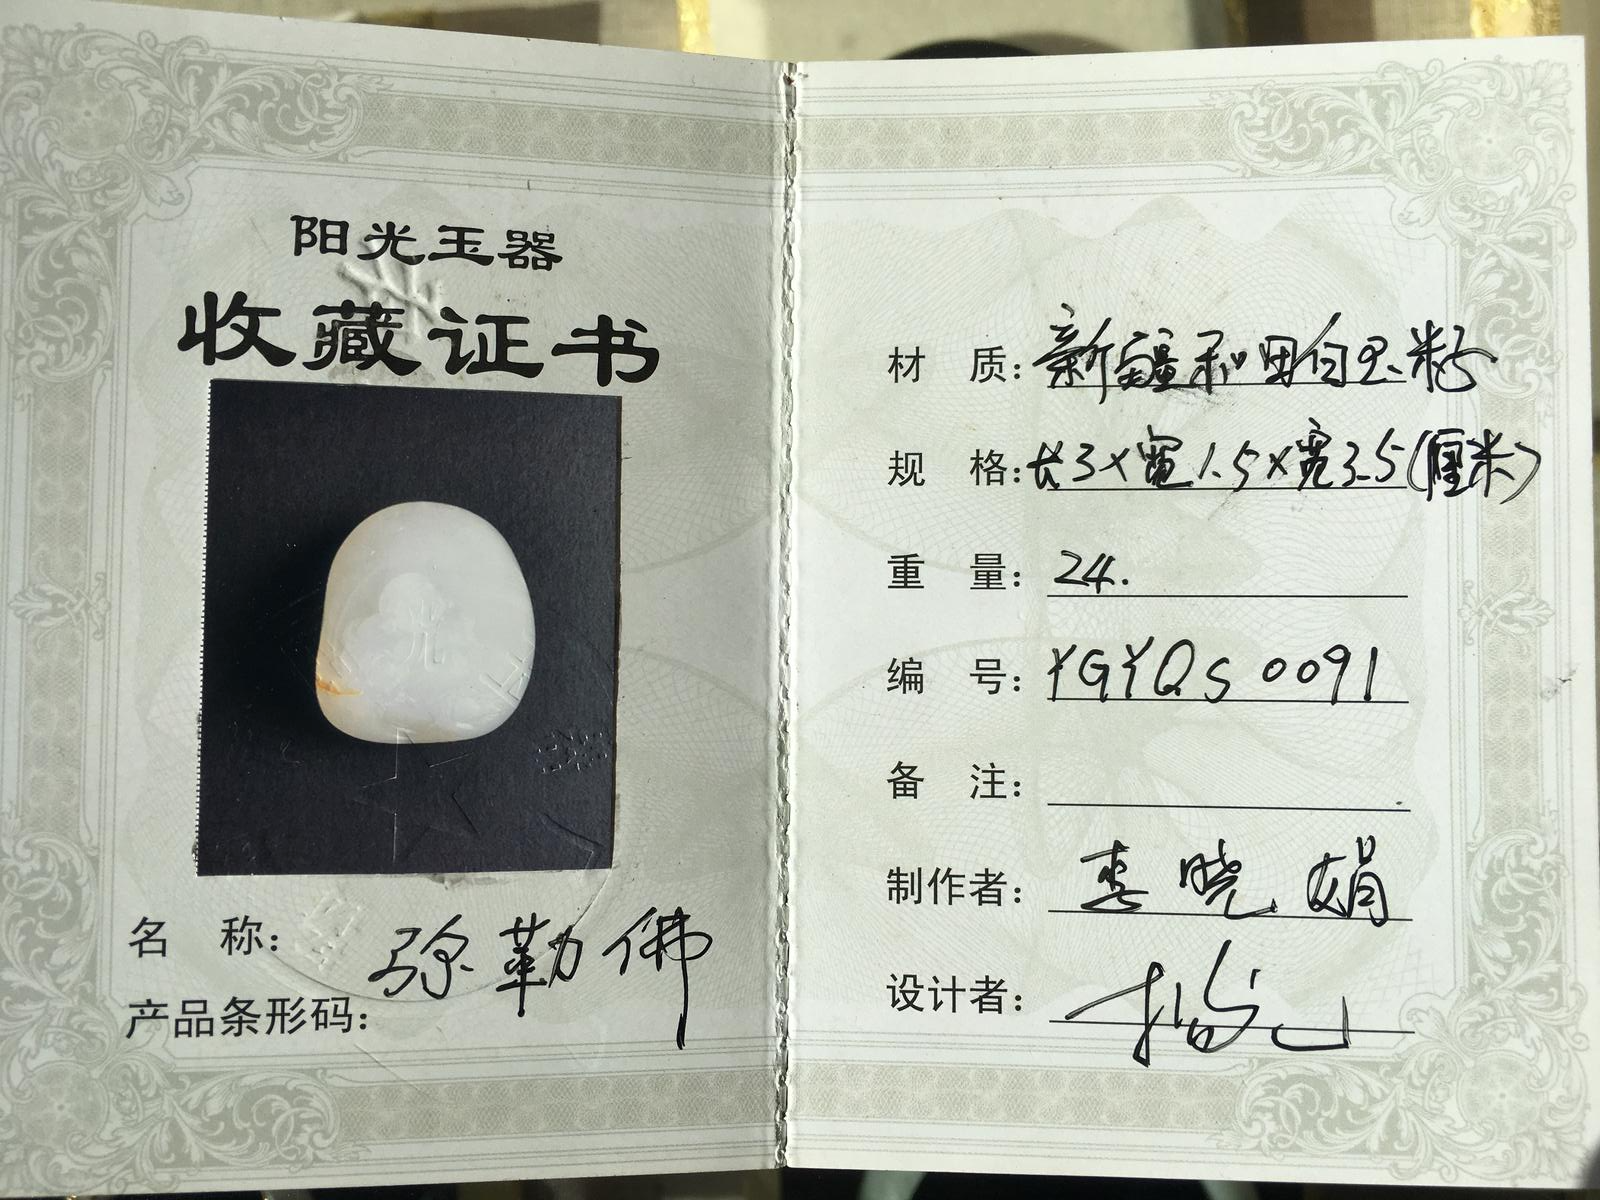 阳光玉器
收藏证书
名 称: 弥勒佛
产品条形码:
材 质: 新疆和田白玉籽
规 格: 长3×宽1.5×宽3.5(厘米)
重 量: 24.
编 号: YGYQS 0091
备 注:
制作者: 李晓娟
设计者: